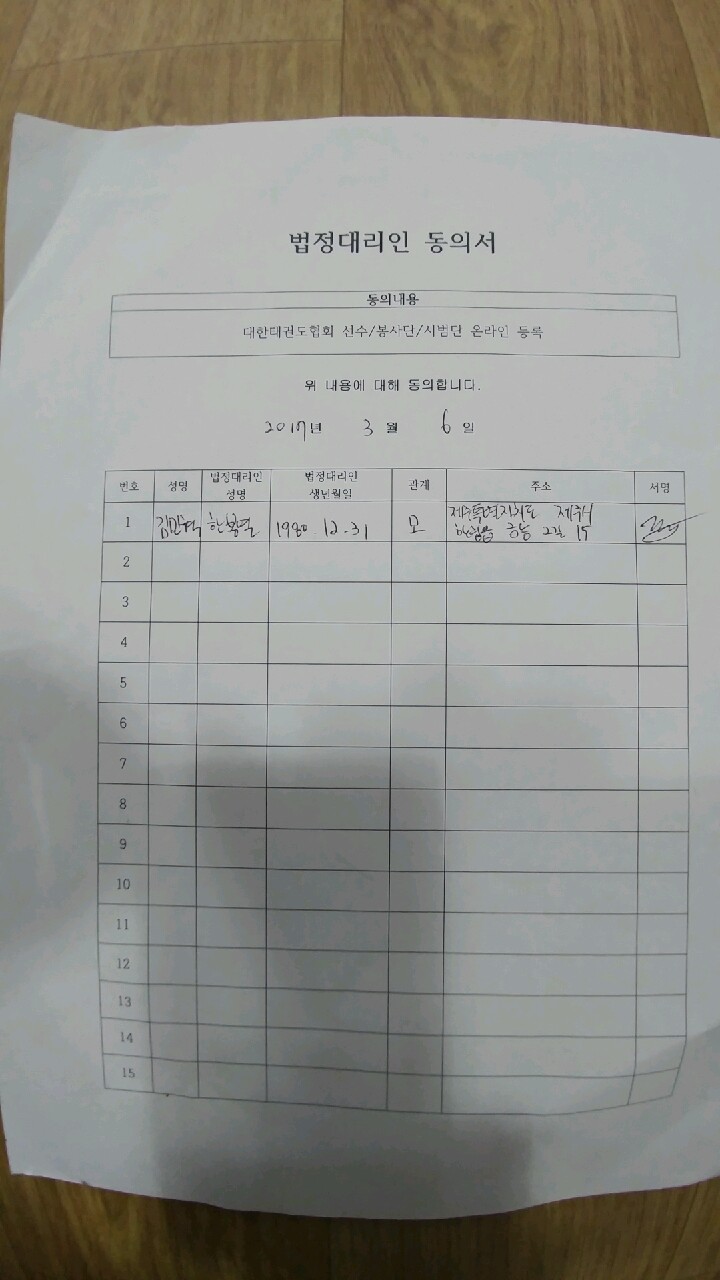 법정대리인 동의서
동의내용
대한태권도협회 선수/봉사단/시범단 온라인 등록
위 내용에 대해 동의합니다.
2017년 3월 6일
번호 성명 법정대리인 성명 법정대리인 생년월일 관계 주소 서명
1 김민혁 1980.12.31 모 제주특별자치도 제주시
한림읍 15
2
3
4
5
6
7
8
9
10
11
12
13
14
15